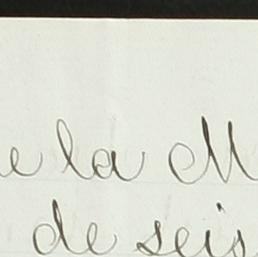 e la M
de seis